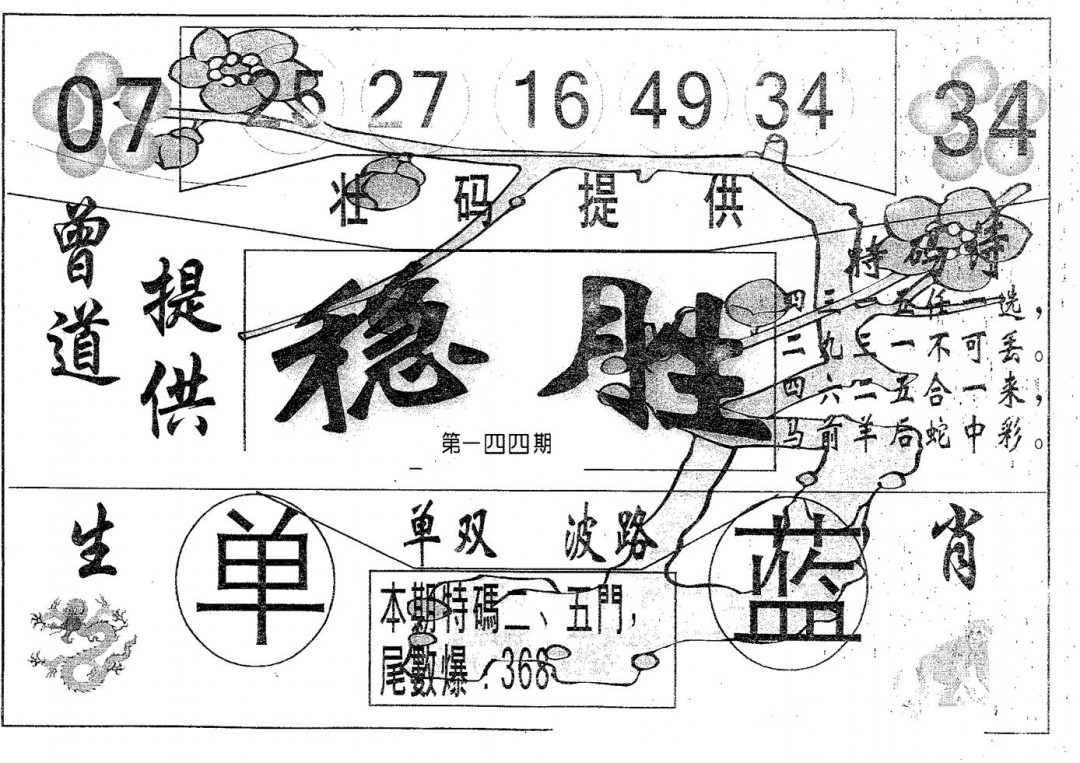 07 25 27 16 49 34 34
壮码提供
曾道
提供
稳胜
第一四四期
特码诗
四三一五任一选，
二九三一不可丢。
四六二五合一来，
马前羊后蛇中彩。
生
单
单双 波路
蓝
肖
本期特碼二、五門，
尾數爆：368